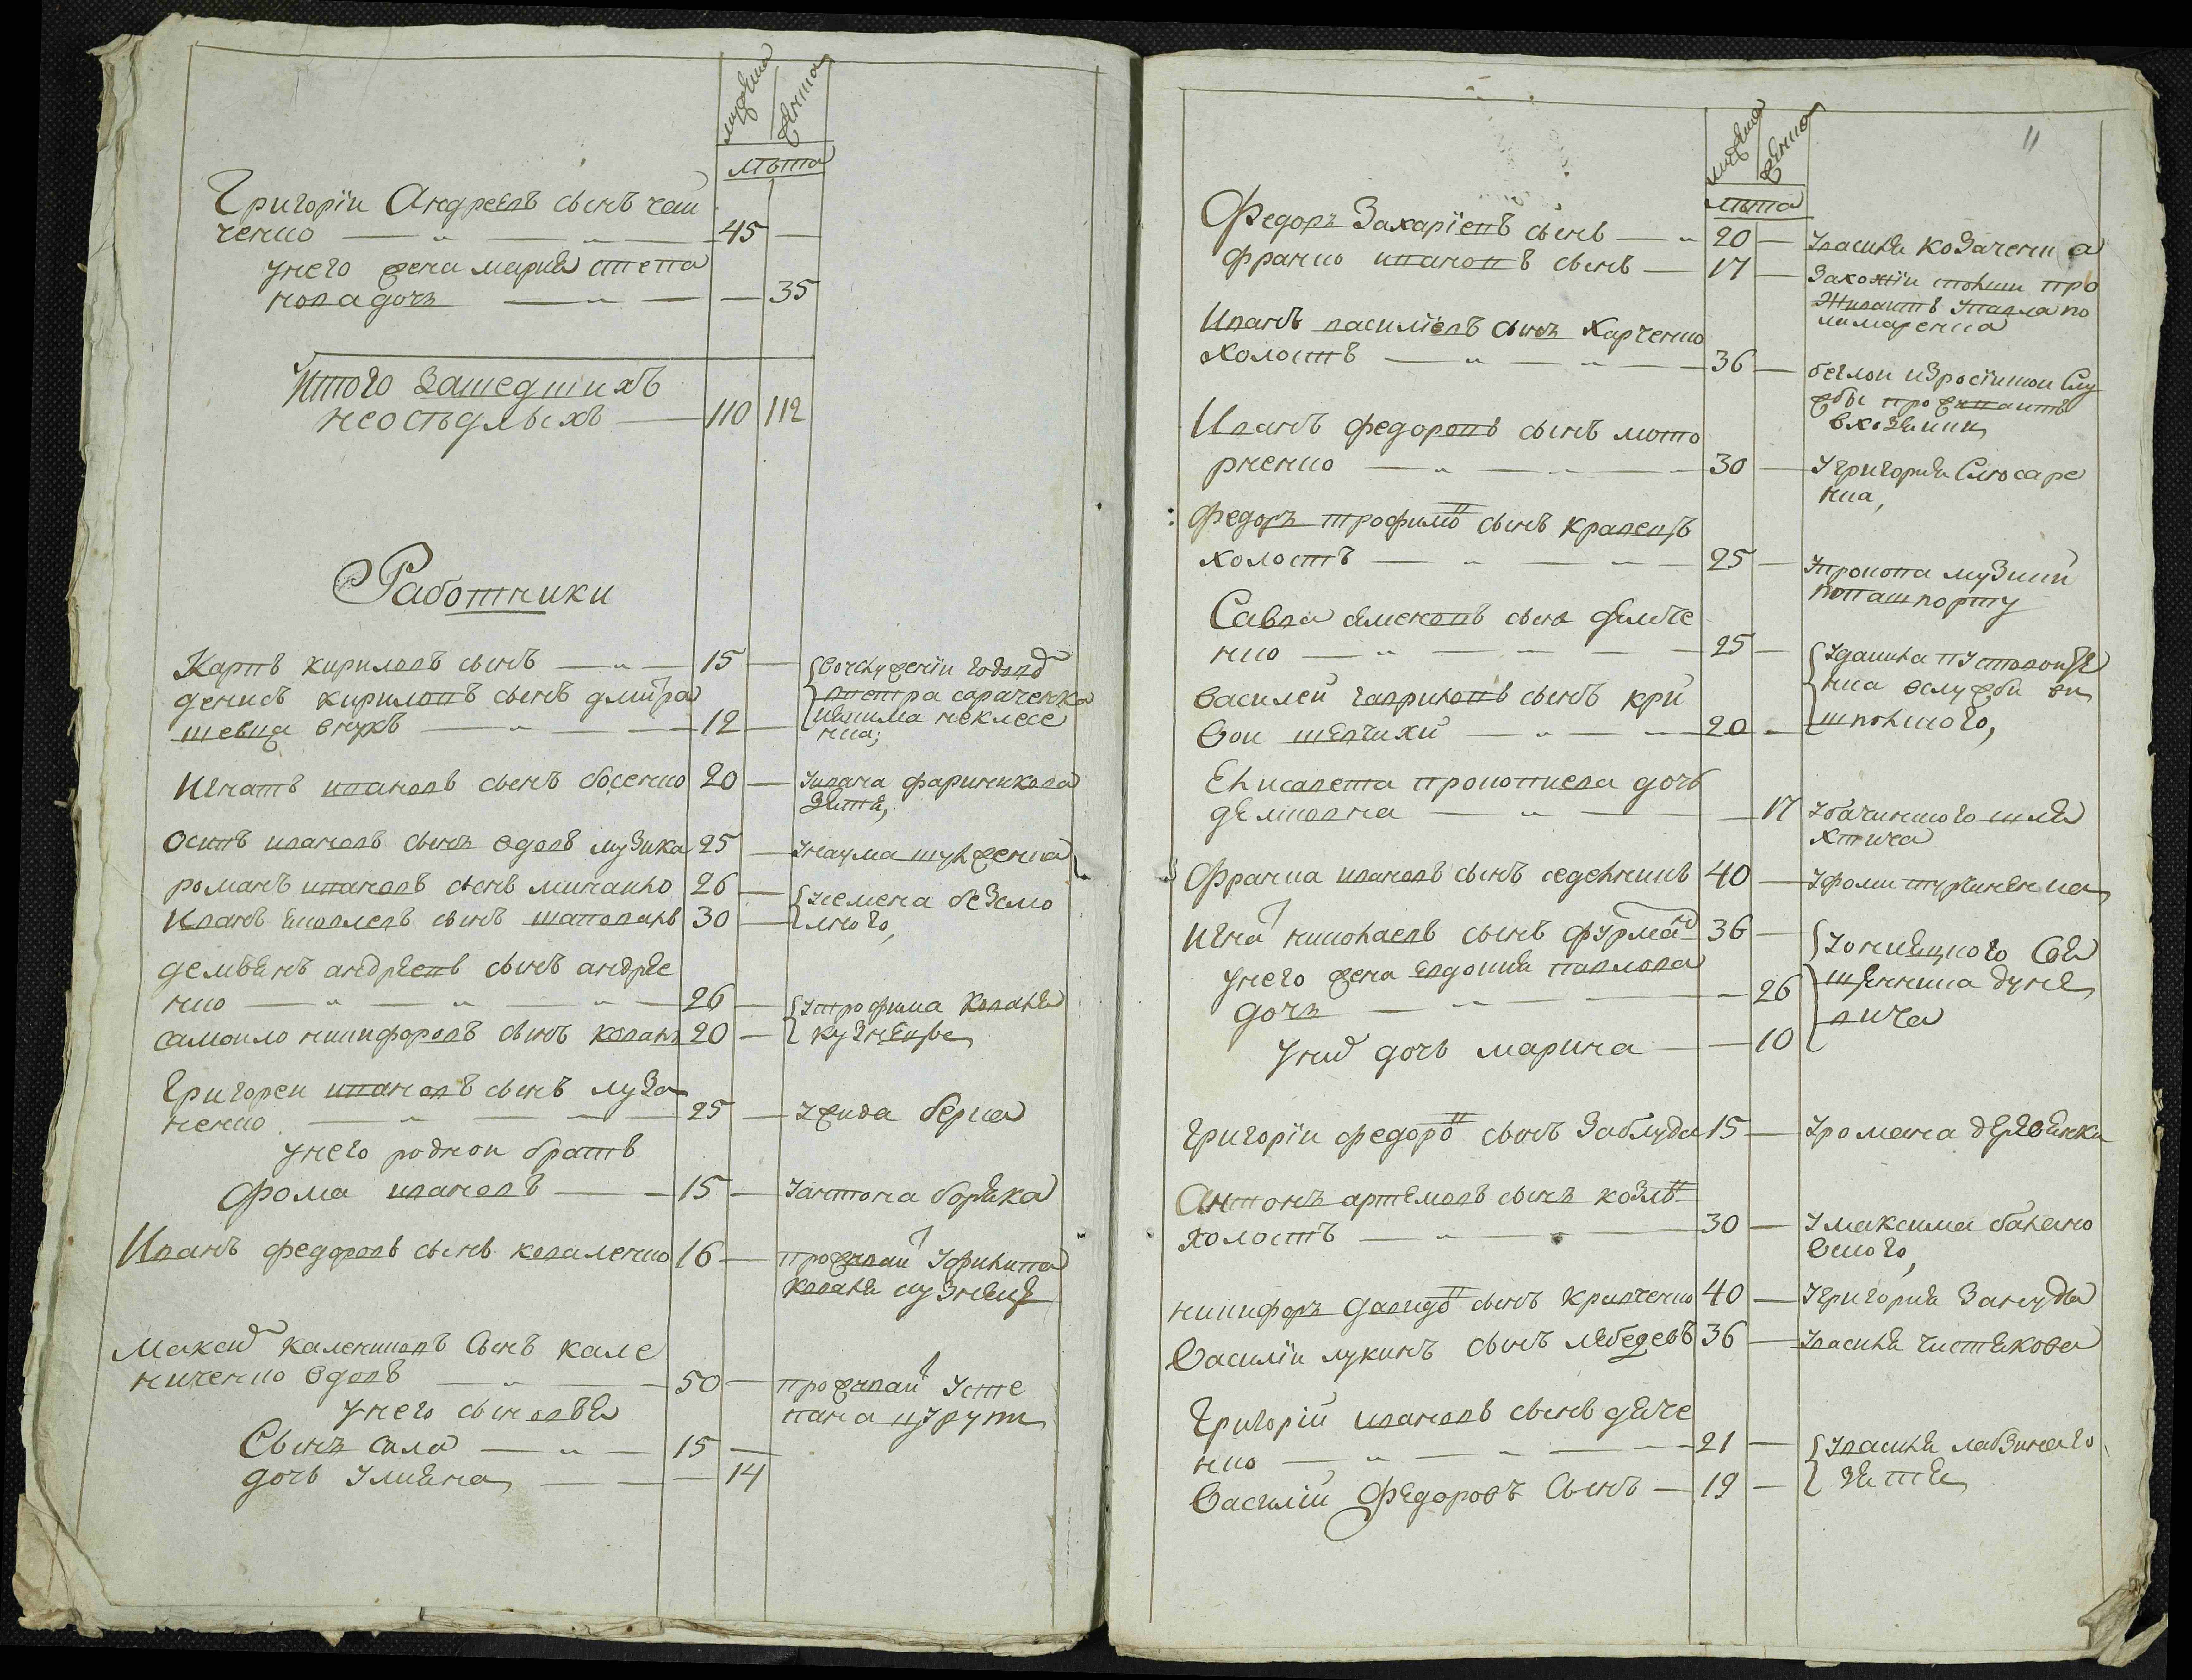 мужска женска
лѣта
Григорїи Андреевъ сынъ чаи
ченко — „ — „ — 45 —
унего жена мария степа
нова дочь — „ — — 35
Итого зашедшихъ
неоседлыхъ — 110 112
Работники
Карпъ кириловъ сынъ — „ — 15 —
денисъ кириловъ сынъ дмитра
шевца внукъ — „ — 12 —
петра сараченка
Игнатъ ивановъ сынъ босенко 20 — Уивана фаринникова
зятя,
осипъ ивановъ сынъ вдовъ музика 25 — Унаума шулженка
романъ ивановъ сынъ минаило 26 —
Иванъ яковлевъ сынъ шаповалъ 30 —
демьянъ андреевъ сынъ андрее
нко — „ — „ — „ — 26 — Утрофима коваля
самоило никифоровъ сынъ коваль 20 — кузнецъва
Григореи ивановъ сынъ луза
ненко — „ — — 25 — Ужида берка
унего роднои братъ
фома ивановъ — — 15 — Уантона боряка
Иванъ федоровъ сынъ коваленко 16 — проживаи т Уфилипа
коваля кузнеця
Максим калениковъ сынъ кале
ниченко вдовъ — „ — 50 — проживаи т Усте
пана цурупи
унего сыновья
Сынъ сава — „ — 15 —
дочь Улияна — — — 14
11
мужска женска
лѣта
Федоръ Захарїевъ сынъ — „ 20 — Увасиля козаченка
франко ивановъ сынъ — 17 — Захожїи полши про
живаитъ Упавла по
ламаренка
Иванъ василїевъ сынъ Харченко
холостъ — „ — „ — 36 — беглои изросїискои слу
жбы проживаитъ
Иванъ федоровъ сынъ мото
рненко — „ — „ — 30 — Угригория слюсаре
нка,
федоръ трофимов сынъ кравецъ
холостъ — „ — „ — 25 — Упрокопа музики
попашпорту
Савва семеновъ сынъ филѣче
нко — „ — — — 25 —
василеи гавриловъ сынъ кри
вои шевчикъ — „ — — 20 —
Елисавета прокопиева дочь
демковна — „ — — 17 Убачинского шля
хтича
Франка ивановъ сынъ седелникъ 40 — Уфоми туржиненка
Игнат николаевъ сынъ фурман 36 —
унего жена евдокия павлова
дочь — „ — — 26
Уних дочь марина — — 10
григорїи федоров сынъ заблуда 15 — Уромана деревянки
Антонъ артемовъ сынъ козлов
холостъ — „ — — 30 — Умаксима балано
вского,
никифоръ давидов сынъ кривченко 40 — Угригория Заклуды
Василїи лукинъ сынъ лебедевъ 36 — Увасиля чистякова
Григорїи ивановъ сынъ дяче
нко — „ — „ — „ — 21 — Увасиля лабзинаго
Василїи Федоровъ Сынъ — 19 — зятя